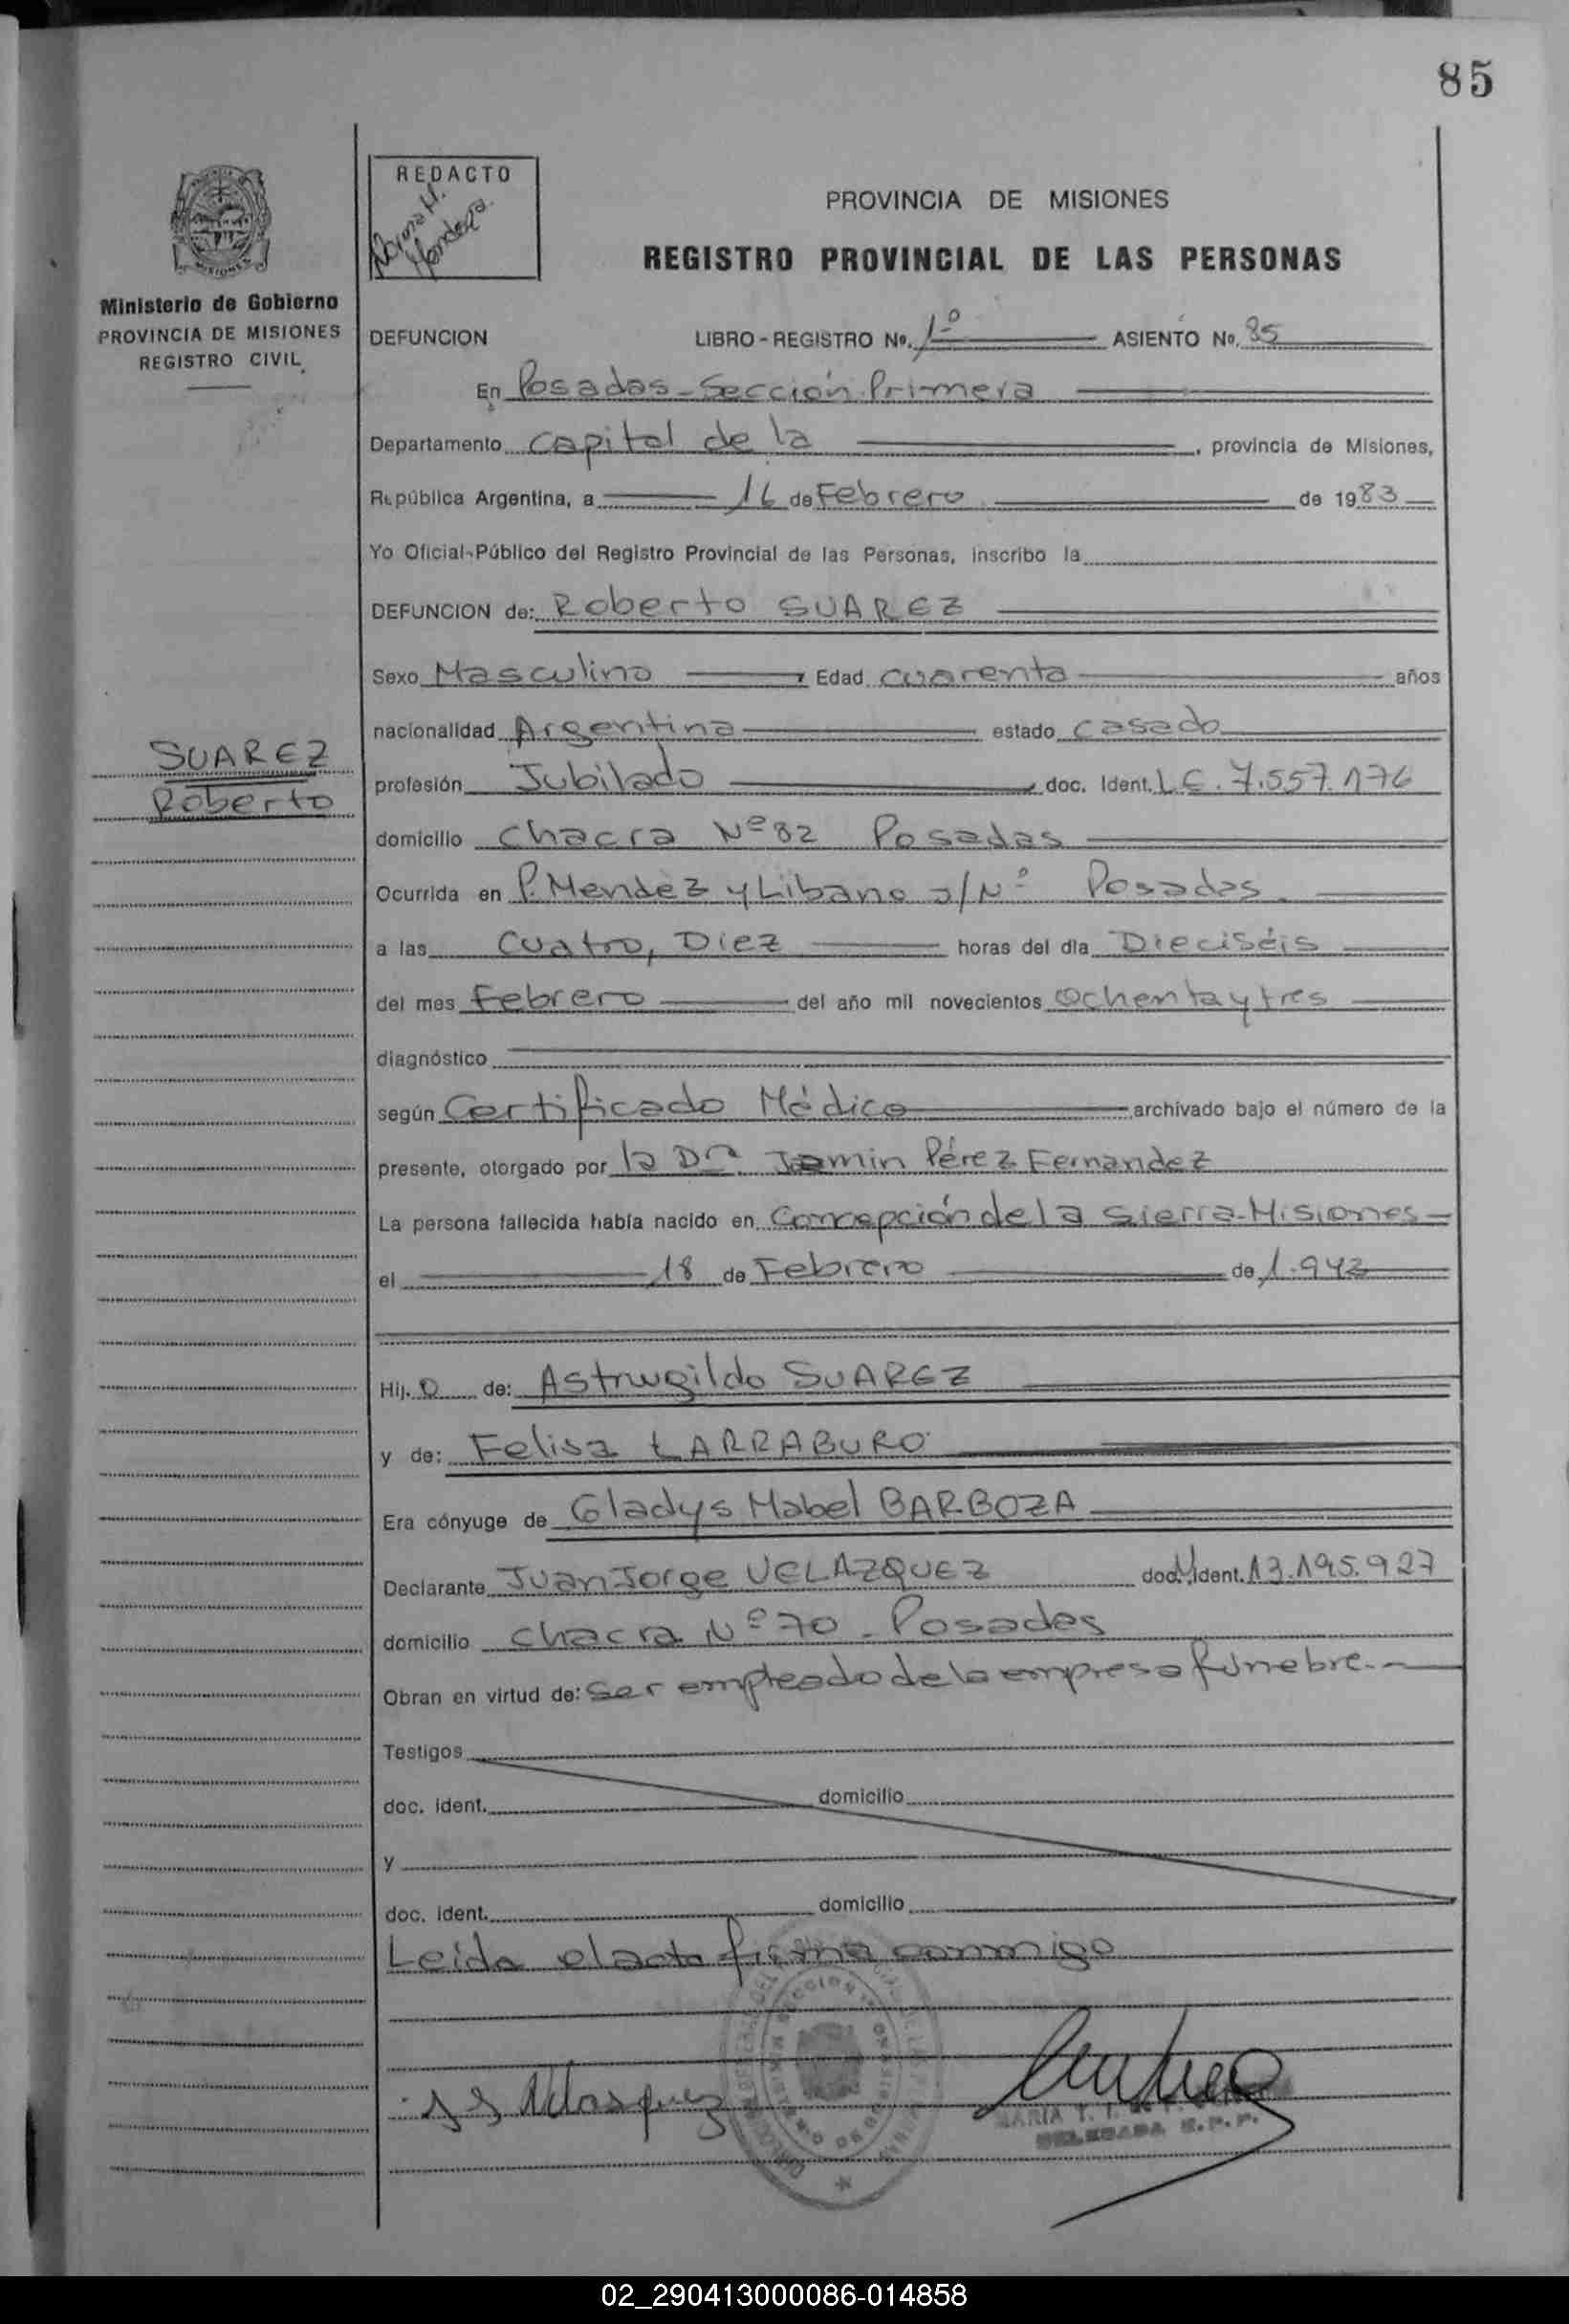 85
REDACTO
Norma H.
Mendoza.
PROVINCIA DE MISIONES
REGISTRO PROVINCIAL DE LAS PERSONAS
Ministerio de Gobierno
PROVINCIA DE MISIONES
REGISTRO CIVIL
DEFUNCION LIBRO - REGISTRO No. 1º ASIENTO No. 85
En Posadas - Sección Primera
Departamento Capital de la , provincia de Misiones,
República Argentina, a 16 de Febrero de 1983
Yo Oficial Público del Registro Provincial de las Personas, inscribo la
DEFUNCION de: Roberto SUAREZ
Sexo Masculino , Edad cuarenta años
nacionalidad Argentina estado casado
SUAREZ
Roberto
profesión Jubilado , doc. Ident. L.E. 7.557.176
domicilio Chacra Nº 82 Posadas
Ocurrida en P. Mendez y Libano s/Nº Posadas.
a las Cuatro, Diez horas del día Dieciséis
del mes Febrero del año mil novecientos Ochenta y tres
diagnóstico
según Certificado Médico archivado bajo el número de la
presente, otorgado por la Dra. Pérez Fernandez
La persona fallecida había nacido en Concepción de la Sierra - Misiones -
el 18 de Febrero de 1.942
Hij. o de: Astrugildo SUAREZ
y de: Felisa LARRABURO
Era cónyuge de Gladys Mabel BARBOZA
Declarante Juan Jorge VELAZQUEZ doc. ident. 13.195.927
domicilio Chacra Nº 70 - Posadas
Obran en virtud de: Ser empleado de la empresa fúnebre. -
Testigos
doc. ident. domicilio
y
doc. ident. domicilio
Leída el acta firma conmigo
J J Velasquez
MARIA T.
DELEGADA R.P.P.
02_290413000086-014858